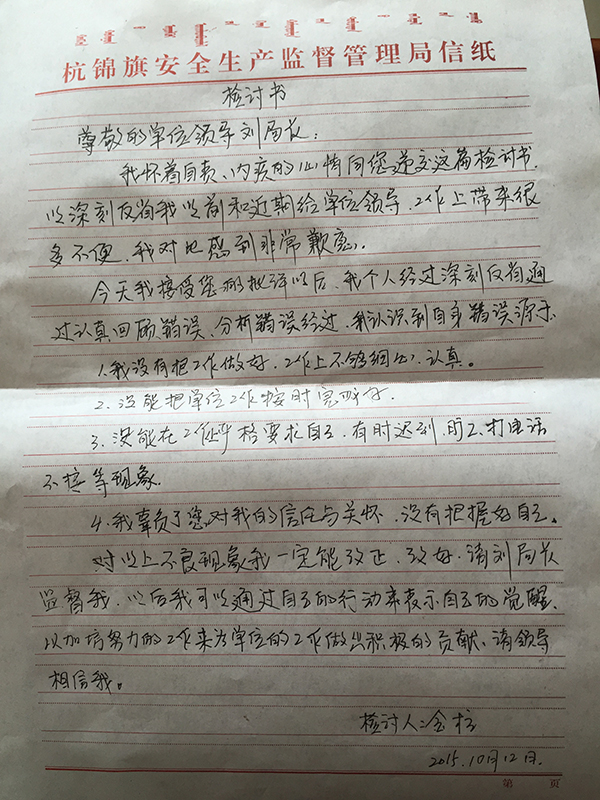 杭锦旗安全生产监督管理局信纸
检讨书
尊敬的单位领导刘局长：
我怀着自责、内疚的心情向您递交这篇检讨书.
以深刻反省我以前和近期给单位领导、工作上带来很
多不便、我对此感到非常歉意、
今天我接受您的批评以后、我个人经过深刻反省通
过认真回顾错误、分析错误经过、我认识到自身错误源于、
1.我没有把工作做好、工作上不够细心、认真。
2、没能把单位工作按时完成好.
3、没能在工作严格要求自己、有时迟到、旷工、打电话
不接等现象.
4.我辜负了您对我的信任与关怀、没有把握好自己、
对以上不良现象我一定能改正、改好、请刘局长
监督我、以后我可以通过自己的行动来表示自己的觉醒、
以加倍努力的工作来为单位的工作做出积极的贡献、请领导
相信我。
检讨人：金柱
2015.10月12日.
第 页